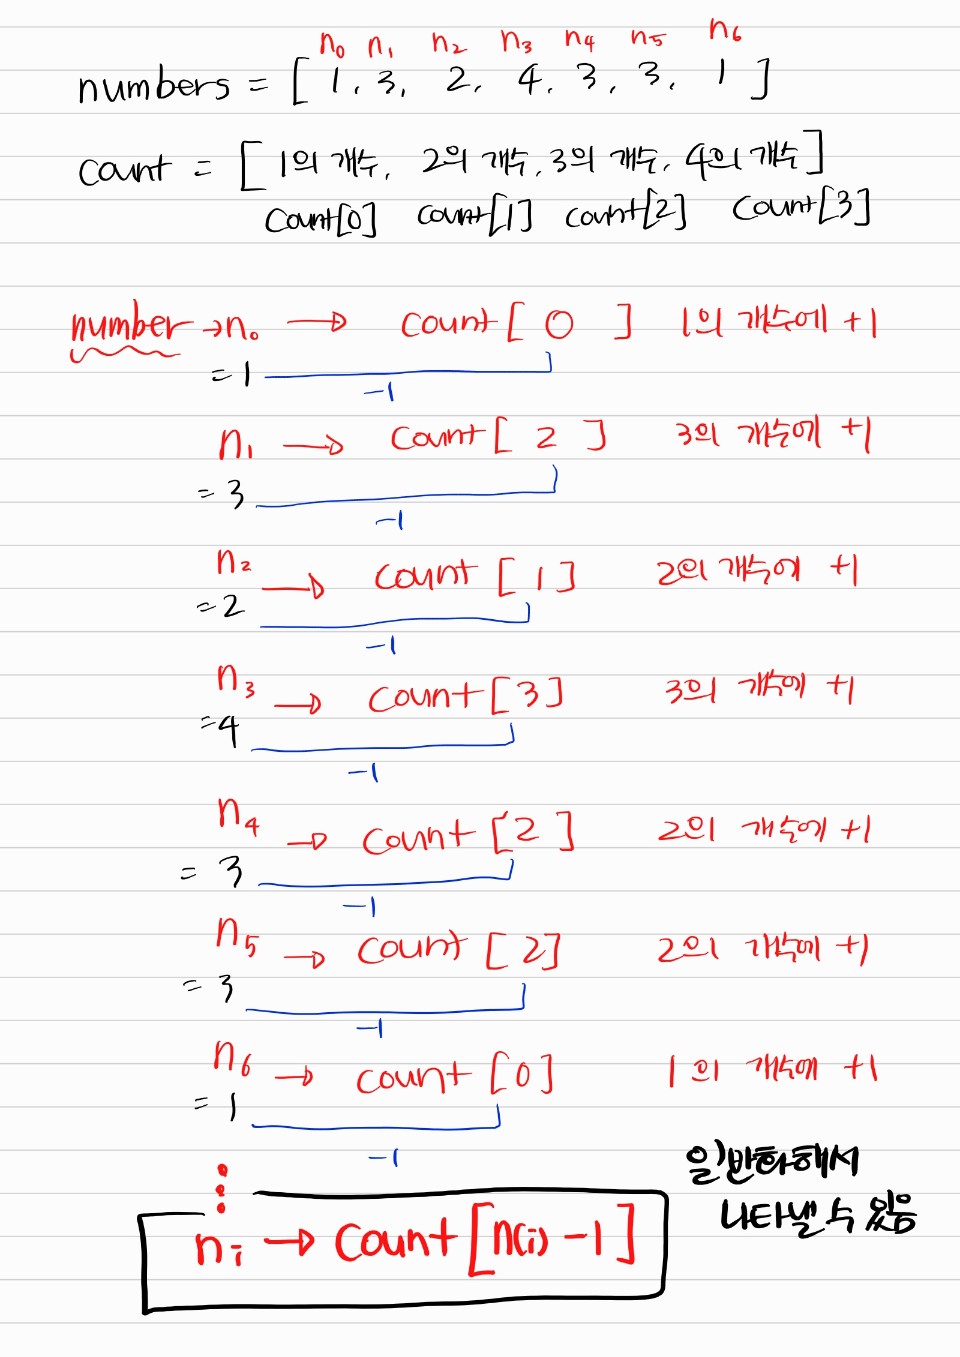 n₀ n₁ n₂ n₃ n₄ n₅ n₆
numbers = [ 1, 3, 2, 4, 3, 3, 1 ]
count = [ 1의 개수, 2의 개수, 3의 개수, 4의 개수 ]
count[0] count[1] count[2] count[3]
number → n₀ → count [ 0 ] 1의 개수에 +1
= 1
-1
n₁ → count [ 2 ] 3의 개수에 +1
= 3
-1
n₂ → count [ 1 ] 2의 개수에 +1
= 2
-1
n₃ → count [ 3 ] 3의 개수에 +1
= 4
-1
n₄ → count [ 2 ] 2의 개수에 +1
= 3
-1
n₅ → count [ 2 ] 2의 개수에 +1
= 3
-1
n₆ → count [ 0 ] 1의 개수에 +1
= 1
-1
일반화해서
나타낼 수 있음
nᵢ → count [ n(i) - 1 ]